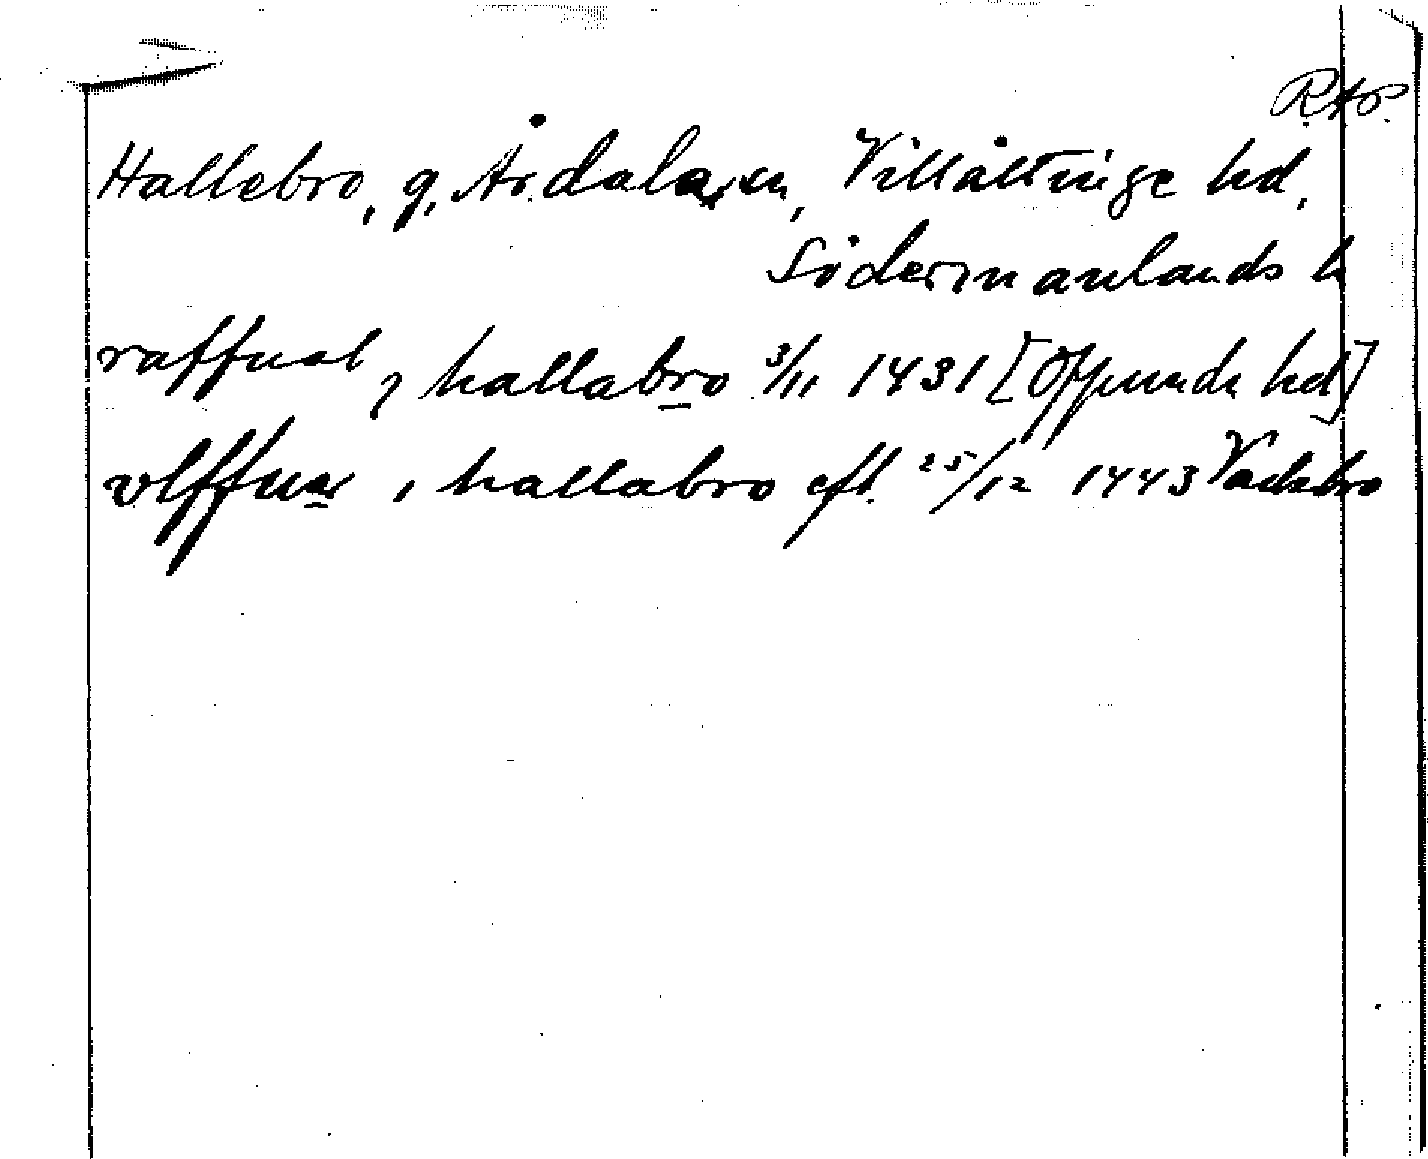 RAP.
Hallebro, g, Årdala sn, Villåttinge hd,
Södermanlands l
raffual, j hallabro 3/11 1431 [Oppunda hd]
vlffuer i hallabro eft. 25/12 1443 Vadsbro